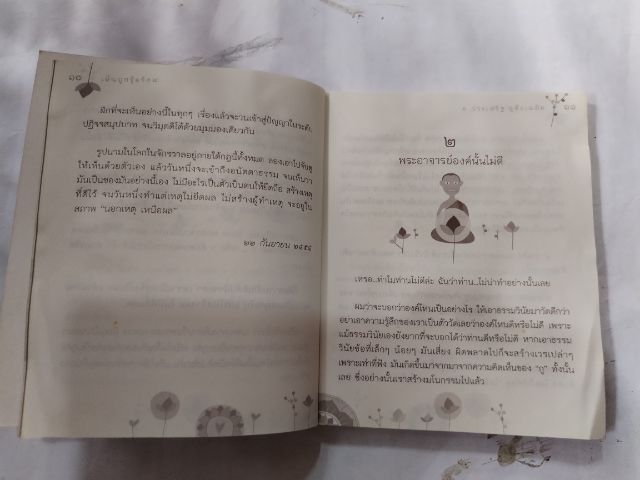 ๑๐
ฝึกที่จะเห็นอย่างนี้ในทุกๆ เรื่องแล้วจะวนเข้าสู่ปัญญาในระดับ
ปฏิจจสมุปบาท จนวิมุตติได้ด้วยมุมมองเดียวกัน
รูปนามในโลกในจักรวาลอยู่ภายใต้กฎนี้ทั้งหมด ลองเอาไปจับดู
ให้เห็นด้วยตัวเอง แล้ววันหนึ่งจะเข้าถึงอนัตตาธรรม จนเห็นว่า
มันเป็นของมันอย่างนี้เอง ไม่มีอะไรเป็นตัวเป็นตนให้ยึดถือ สร้างเหตุ
ที่ดีไว้ จนวันหนึ่งทำแต่เหตุไม่ยึดผล ไม่สร้างผู้ทำเหตุ จะอยู่ใน
สภาพ "นอกเหตุ เหนือผล"
๒๒ กันยายน ๒๕๕๔
๑๑
๒
พระอาจารย์องค์นั้นไม่ดี
เหรอ...ทำไมท่านไม่ดีล่ะ ฉันว่าท่าน...ไม่น่าทำอย่างนั้นเลย
ผมว่าจะบอกว่าองค์ไหนเป็นอย่างไร ให้เอาธรรมวินัยมาวัดดีกว่า
อย่าเอาความรู้สึกของเราเป็นตัววัดเลยว่าองค์ไหนดีหรือไม่ดี เพราะ
แม้ธรรมวินัยเองยังยากที่จะบอกได้ว่าท่านดีหรือไม่ดี หากเอาธรรม
วินัยข้อที่เล็กๆ น้อยๆ มันเสี่ยง ผิดพลาดไปก็จะสร้างเวรเปล่าๆ
เพราะเท่าที่ฟัง มันเกิดขึ้นมาจากมาจากความคิดเห็นของ "กู" ทั้งนั้น
เลย ซึ่งอย่างนั้นเราสร้างมโนกรรมไปแล้ว